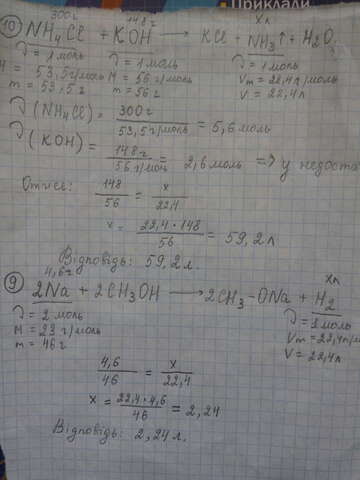 Приклади
300г 148г Xл
10) NH₄Cl + KOH → KCl + NH₃↑ + H₂O
ν = 1 моль ν = 1 моль ν = 1 моль
M = 53,5 г/моль M = 56 г/моль Vm = 22,4 л/моль
m = 53,5 г m = 56 г V = 22,4 л
ν(NH₄Cl) = 300 г / 53,5 г/моль = 5,6 моль
ν(KOH) = 148 г / 56 г/моль = 2,6 моль ⇒ у недоста
Отже: 148 / 56 = x / 22,4
x = 22,4 · 148 / 56 = 59,2 л
Відповідь: 59,2 л.
4,6 г Xл
9) 2Na + 2CH₃OH → 2CH₃-ONa + H₂
ν = 2 моль ν = 1 моль
M = 23 г/моль Vm = 22,4 л/мо
m = 46 г V = 22,4 л
4,6 / 46 = x / 22,4
x = 22,4 · 4,6 / 46 = 2,24
Відповідь: 2,24 л.